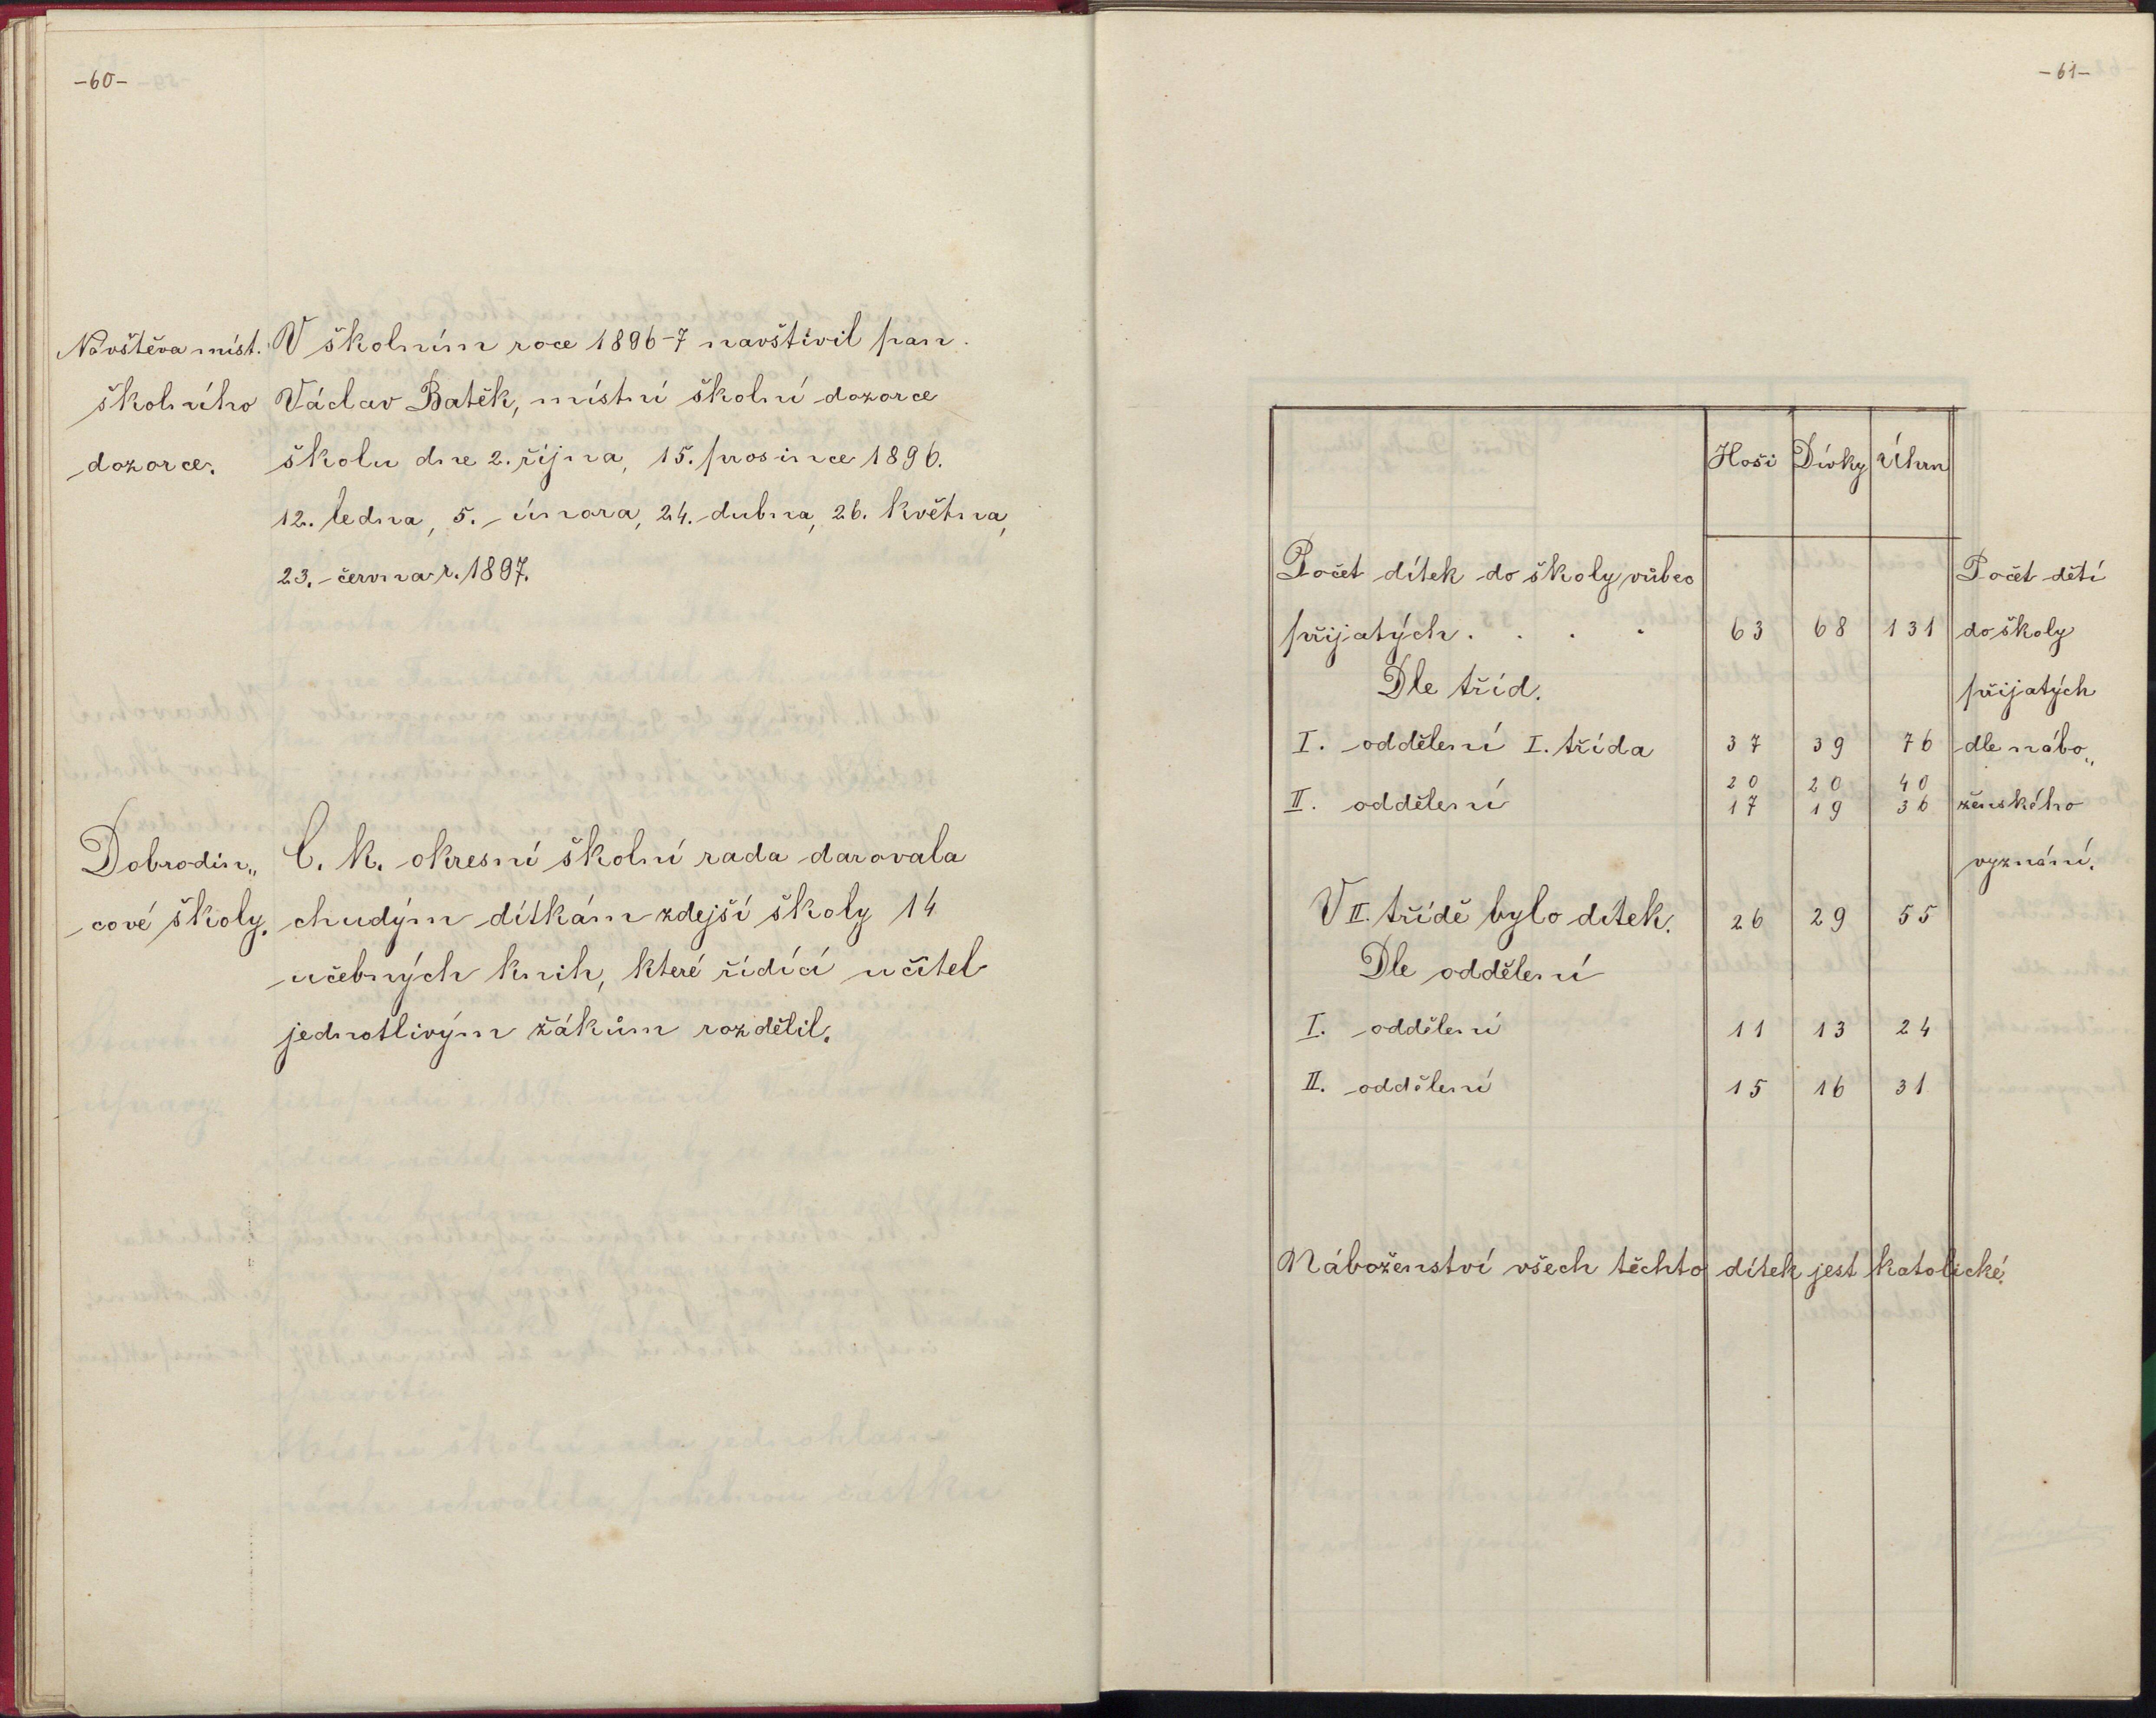 -60-
Návštěva míst. V školním roce 1896-7 navštívil pan
školního Václav Batěk, místní školní dozorce
dozorce. školu dne 2. října, 15. prosince 1896.
12. ledna, 5. února, 24. dubna, 26. května,
23. června r. 1897.
Dobrodin„ C. k. okresní školní rada darovala
cové školy. chudým dítkám zdejší školy 14
učebných knih, které řídící učitel
jednotlivým žákům rozdělil.
-61-
Hoši Dívky Úhrn
Počet dítek do školy vůbec Počet dětí
přijatých . . . . 63 68 131 do školy
Dle tříd. přijatých
I. oddělení I. třída 37 39 76 dle nábo„
20 20 40
II. oddělení 17 19 36 ženského
vyznání.
V II. třídě bylo dítek. 26 29 55
Dle oddělení
I. oddělení 11 13 24
II. oddělení 15 16 31
Náboženství všech těchto dítek jest katolické.